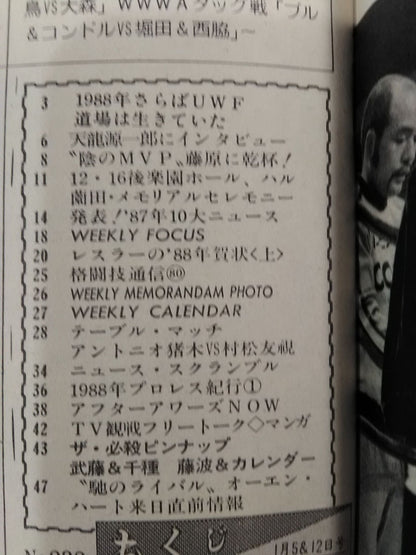 鳥VS大森」WWWAタッグ戦「ブル
&コンドルVS堀田&西脇」~
3 1988年さらばUWF
道場は生きていた
6 天龍源一郎にインタビュー
8 〝陰のMVP〟藤原に乾杯!
11 12・16後楽園ホール、ハル
薗田・メモリアルセレモニー
14 発表!'87年10大ニュース
18 WEEKLY FOCUS
20 レスラーの'88年賀状〈上〉
25 格闘技通信㊿
26 WEEKLY MEMORANDAM PHOTO
27 WEEKLY CALENDAR
28 テーブル・マッチ
アントニオ猪木VS村松友視
34 ニュース・スクランブル
36 1988年プロレス紀行①
38 アフターアワーズNOW
42 TV観戦フリートーク◇マンガ
43 ザ・必殺ピンナップ
武藤&千種 藤波&カレンダー
47 〝馳のライバル〟オーエン・
ハート来日直前情報
もくじ
1月5&12日号